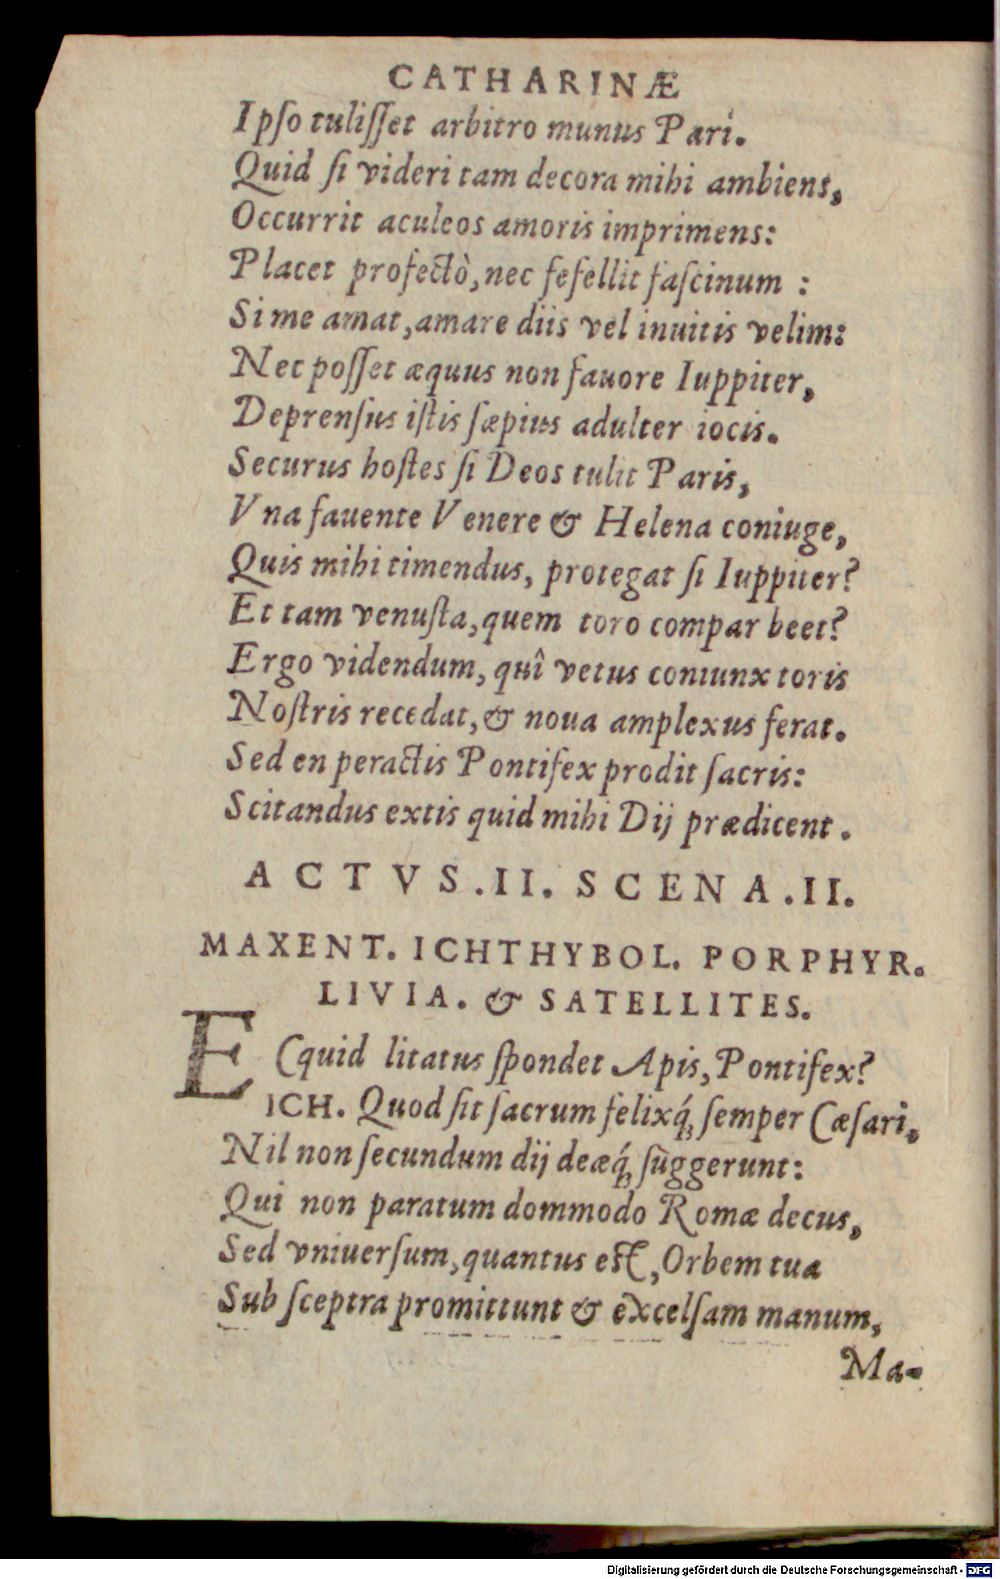 CATHARINÆ
Ipſo tuliſſet arbitro munus Pari.
Quid ſi videri tam decora mihi ambiens,
Occurrit aculeos amoris imprimens:
Placet profectò, nec fefellit faſcinum :
Si me amat, amare diis vel inuitis velim:
Nec poſſet æquus non fauore Iuppiter,
Deprenſus iſtis ſæpius adulter iocis.
Securus hoſtes ſi Deos tulit Paris,
Vna fauente Venere & Helena coniuge,
Quis mihi timendus, protegat ſi Iuppiter?
Et tam venuſta, quem toro compar beet?
Ergo videndum, quî vetus coniunx toris
Noſtris recedat, & noua amplexus ferat.
Sed en peractis Pontifex prodit ſacris:
Scitandus extis quid mihi Dij prædicent.
ACTVS .II. SCENA .II.
MAXENT. ICHTHYBOL. PORPHYR.
LIVIA. & SATELLITES.
ECquid litatus ſpondet Apis, Pontifex?
ICH. Quod ſit ſacrum felixq́; ſemper Cæſari,
Nil non ſecundum dij deæq́; ſuggerunt:
Qui non paratum dommodo Romæ decus,
Sed vniuerſum, quantus eſt, Orbem tua
Sub ſceptra promittunt & excelſam manum,
Ma-
Digitalisierung gefördert durch die Deutsche Forschungsgemeinschaft - DFG